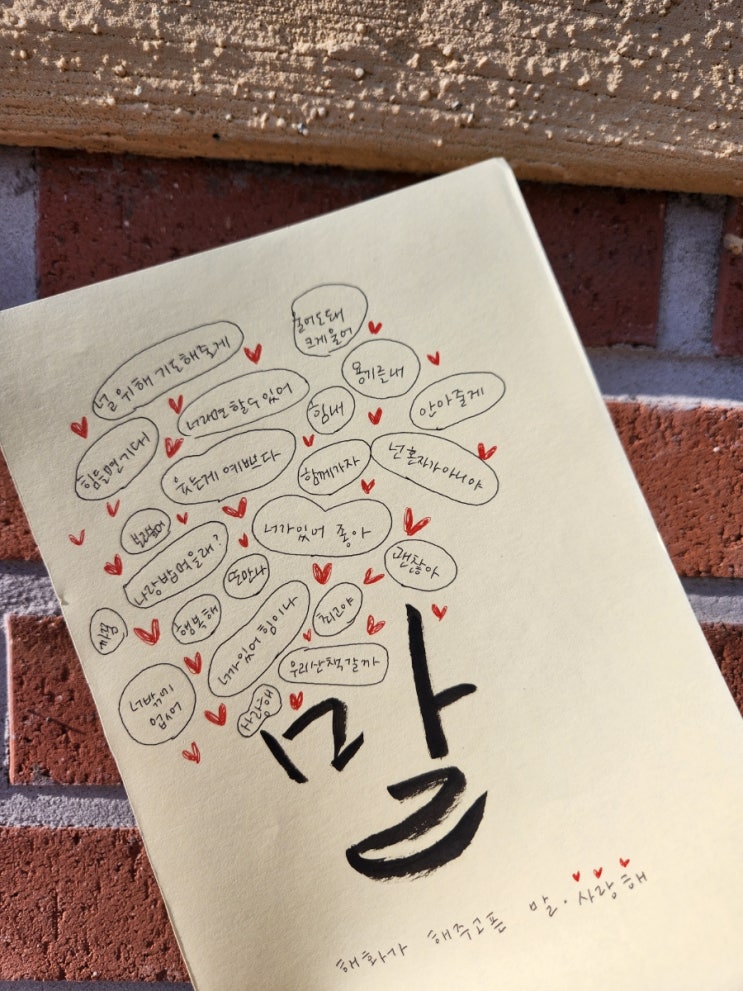 울어도돼
크게울어
널 위해 기도해줄게
용기를내
너라면 할수있어
힘내
안아줄게
힘들면 기대
웃는게 예쁘다
함께가자
넌 혼자가아니야
보고싶어
너가있어 좋아
나랑밥먹을래?
또만나
괜찮아
행복해
너가있어 힘이나
최고야
우리산책갈까
너밖에
없어
사랑해
말
해화가 해주고픈 말. 사랑해